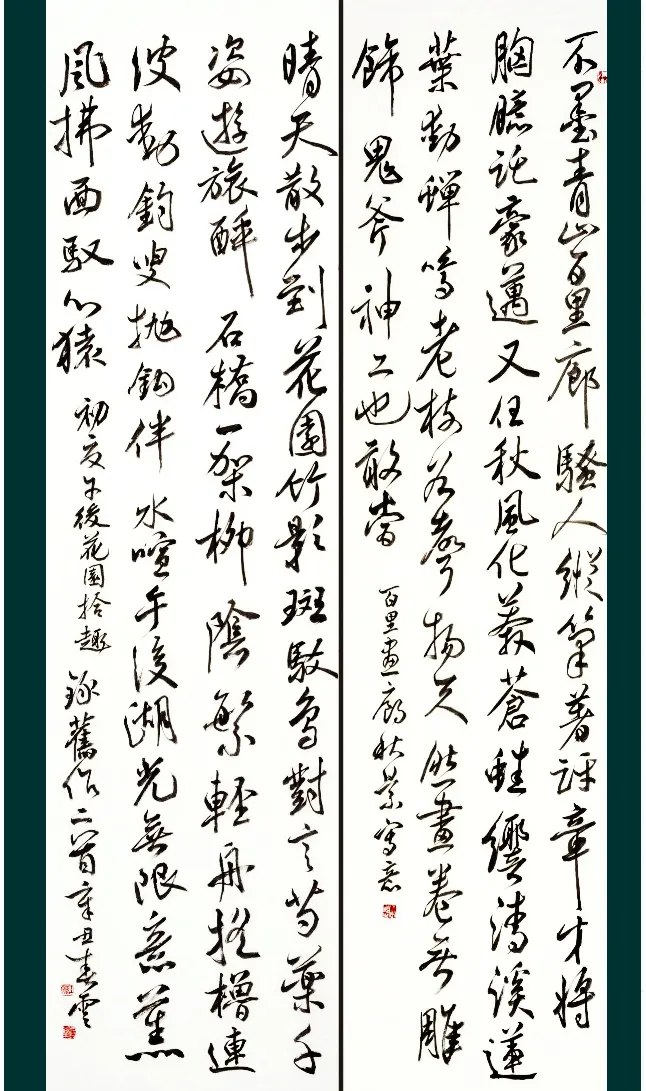 不墨青山百里廊騷人縱筆著詩章才將
胸臆託豪邁又任秋風化莽蒼蛙響清溪蓮
葉動蟬鳴老枝谷聲揚天然畫卷無雕
飾鬼斧神工也敢當
百里畫廊秋景寫意
晴天散步到花園竹影斑駁鳥對言芍藥千
姿遊旅醉石橋一架柳陰繁輕舟搖櫓連
波動釣叟拋鈎伴水喧午後湖光無限意薰
風拂面馭心猿
初夏午後花園拾趣 錄舊作二首辛丑春雲